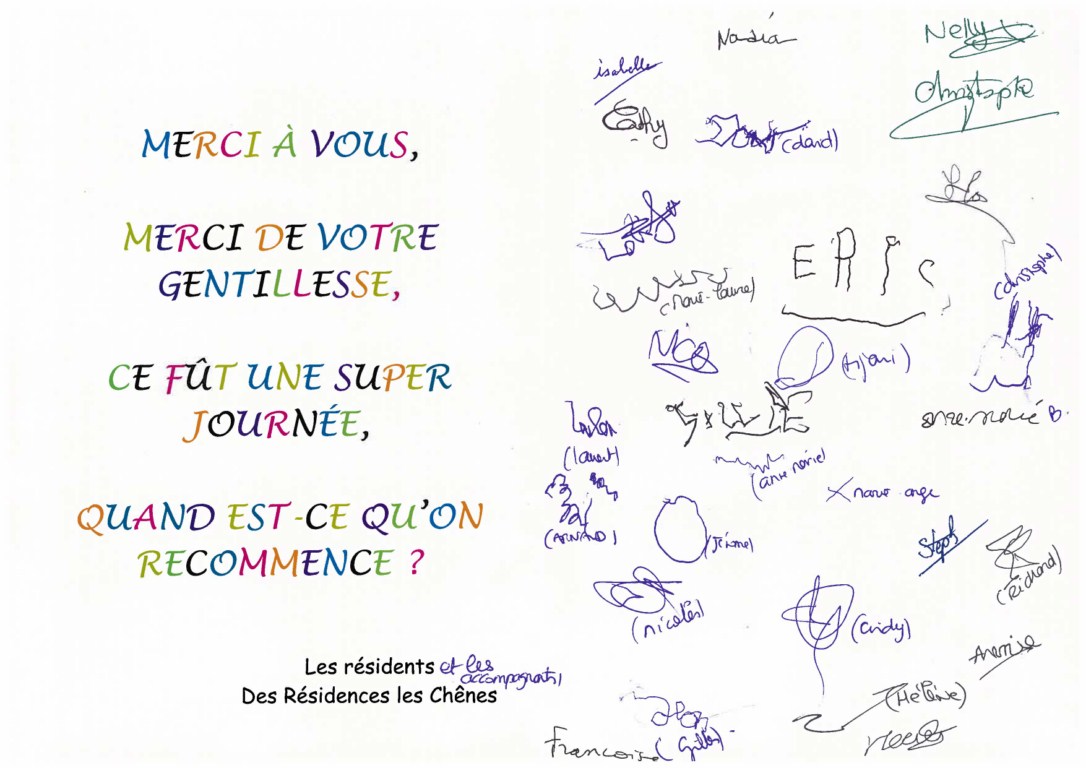 MERCI À VOUS,
MERCI DE VOTRE
GENTILLESSE,
CE FÛT UNE SUPER
JOURNÉE,
QUAND EST-CE QU'ON
RECOMMENCE ?
Les résidents et les
accompagnants
Des Résidences les Chênes
Nadia
Nelly
isabelle
Christophe
Cathy
(david)
ERIC
(christophe)
(marie-laure)
(tijani)
B.
(laurent)
(anne marie)
marie ange
(ARNAND)
(jérôme)
Steph
(Richard)
(nicolas)
(cindy)
(Hélène)
Francoise
(Gilles)